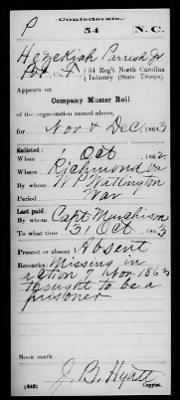 Confederate.
P 54 N.C.
Hezekiah Parrish Jr
Pvt (54 Reg't North Carolina
Infantry (State Troops).
Appears on
Company Muster Roll
of the organization named above,
for Nov & Dec, 1863
Enlisted:
When 1 Oct, 1862
Where Richmond Va
By whom W P Watlington
Period War
Last paid:
By whom Capt Murchison
To what time 31 Oct, 1863
Present or absent Absent
Remarks: Missing in
action 7 Nov 1863
thought to be a
prisoner
Book mark:
J. B. Hyatt
(642) Copyist.